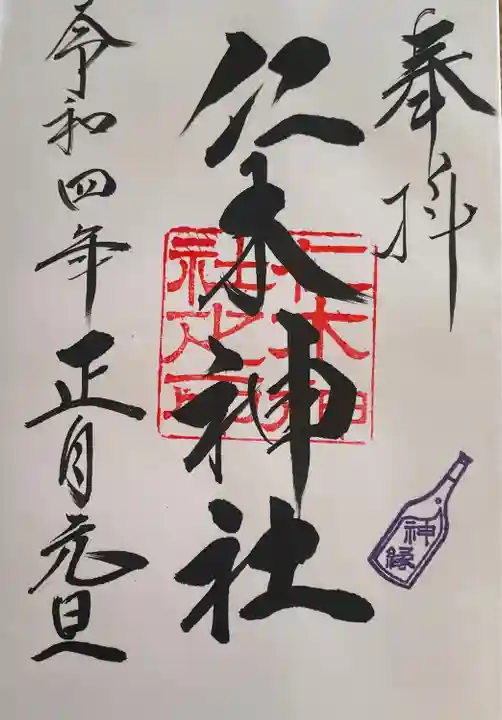 奉拝
仁木神社
仁木神社之印
令和四年正月元旦
神縁